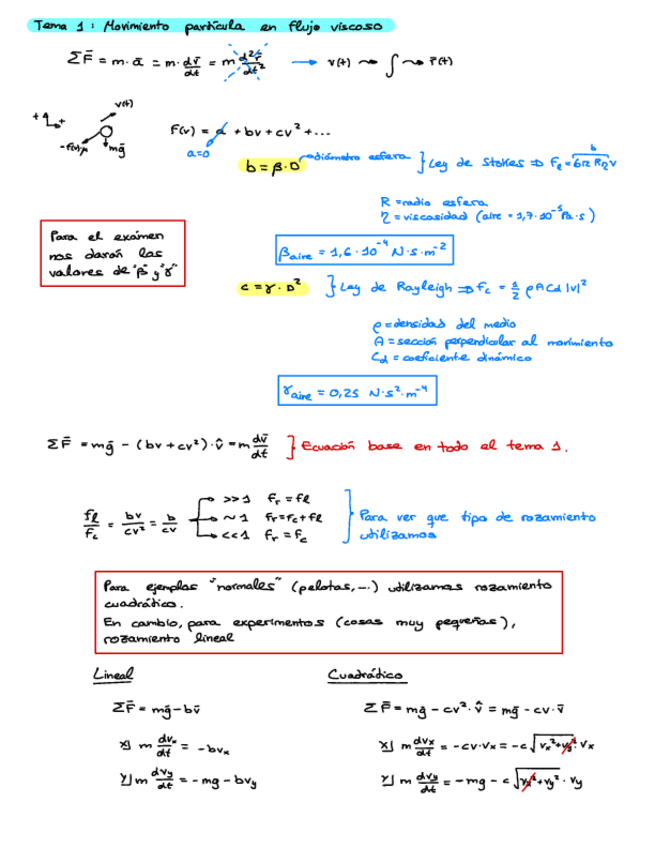 Tema 1: Movimiento partícula en flujo viscoso
ΣF⃗ = m·a⃗ = m·dv⃗/dt = m d²r⃗/dt² → v(t) ⇝ ∫ ⇝ r⃗(t)
v(t)
+ +
-f(v)μ mg⃗
F(v) = a + bv + cv² + ...
a=0
b = β·D diámetro esfera } Ley de Stokes ⇒ Fℓ = 6πRηv
b
R = radio esfera
η = viscosidad (aire = 1,7·10⁻⁵ Pa·s)
Para el exámen
nos darán los
valores de "β" y "γ"
βaire = 1,6·10⁻⁴ N·s·m⁻²
c = γ·D² } Ley de Rayleigh ⇒ Fc = 1/2 ρ A Cd |v|²
ρ = densidad del medio
A = sección perpendicular al movimiento
Cd = coeficiente dinámico
γaire = 0,25 N·s²·m⁻⁴
ΣF⃗ = mg⃗ - (bv + cv²)·v̂ = m dv⃗/dt } Ecuación base en todo el tema 1.
fℓ/fc = bv/cv² = b/cv
>>1 fr = fℓ
~1 fr = fc + fℓ
<<1 fr = fc
Para ver que tipo de rozamiento
utilizamos
Para ejemplos "normales" (pelotas, ...) utilizamos rozamiento
cuadrático.
En cambio, para experimentos (cosas muy pequeñas),
rozamiento lineal
Lineal
ΣF⃗ = mg⃗ - bv⃗
x] m dvx/dt = -bvx
y] m dvy/dt = -mg - bvy
Cuadrático
ΣF⃗ = mg⃗ - cv²·v̂ = mg⃗ - cv·v⃗
x] m dvx/dt = -cv·vx = -c√(vx²+vy²)·vx
y] m dvy/dt = -mg - c√(vx²+vy²)·vy